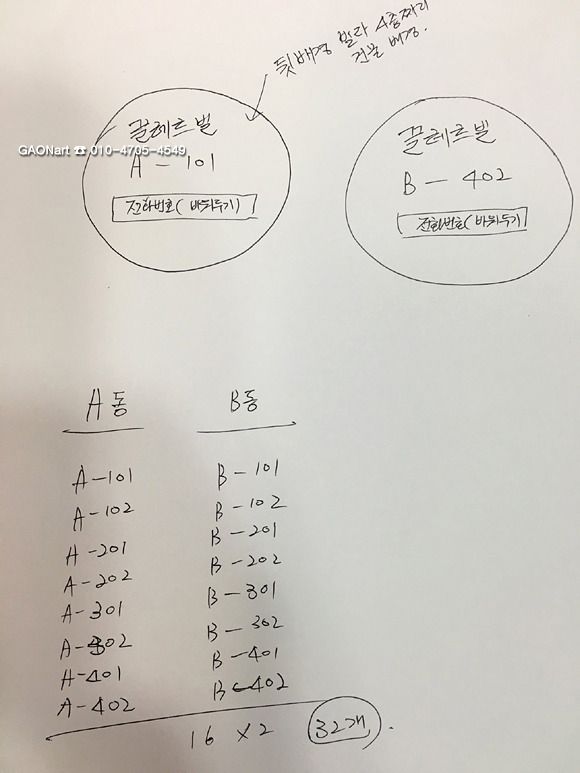 뒷배경 빌라 4층짜리
건물 배경.
끌레르빌
A - 101
전화번호(바뀌두기)
끌레르빌
B - 402
전화번호(바뀌두기
GAONart ☎ 010-4795-4549
A동 B동
A-101 B-101
A-102 B-102
A-201 B-201
A-202 B-202
A-301 B-301
A-302 B-302
A-401 B-401
A-402 B-402
16 x2 32개.